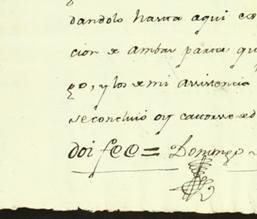 dandolo hasta aqui
cion de ambas partes qu
go, y los de mi assistencia
se concluio oy catorce d
doi fee = Domingo